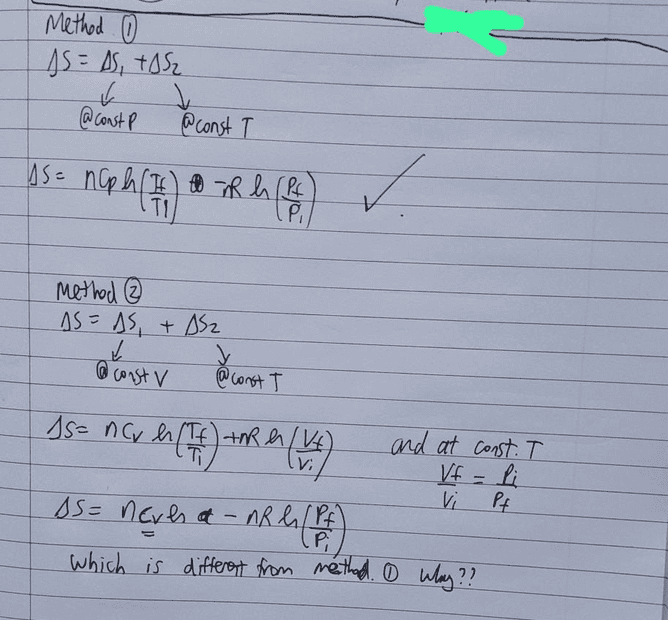 Method ①
ΔS = ΔS₁ + ΔS₂
@const P @const T
ΔS = nCp ln(Tf/Ti) - nR ln(Pf/Pi) ✓
Method ②
ΔS = ΔS₁ + ΔS₂
@const V @const T
ΔS = nCv ln(Tf/Ti) + nR ln(Vf/Vi) and at const. T
Vf/Vi = Pi/Pf
ΔS = nCv ln - nR ln(Pf/Pi)
Which is different from method. ① Why??